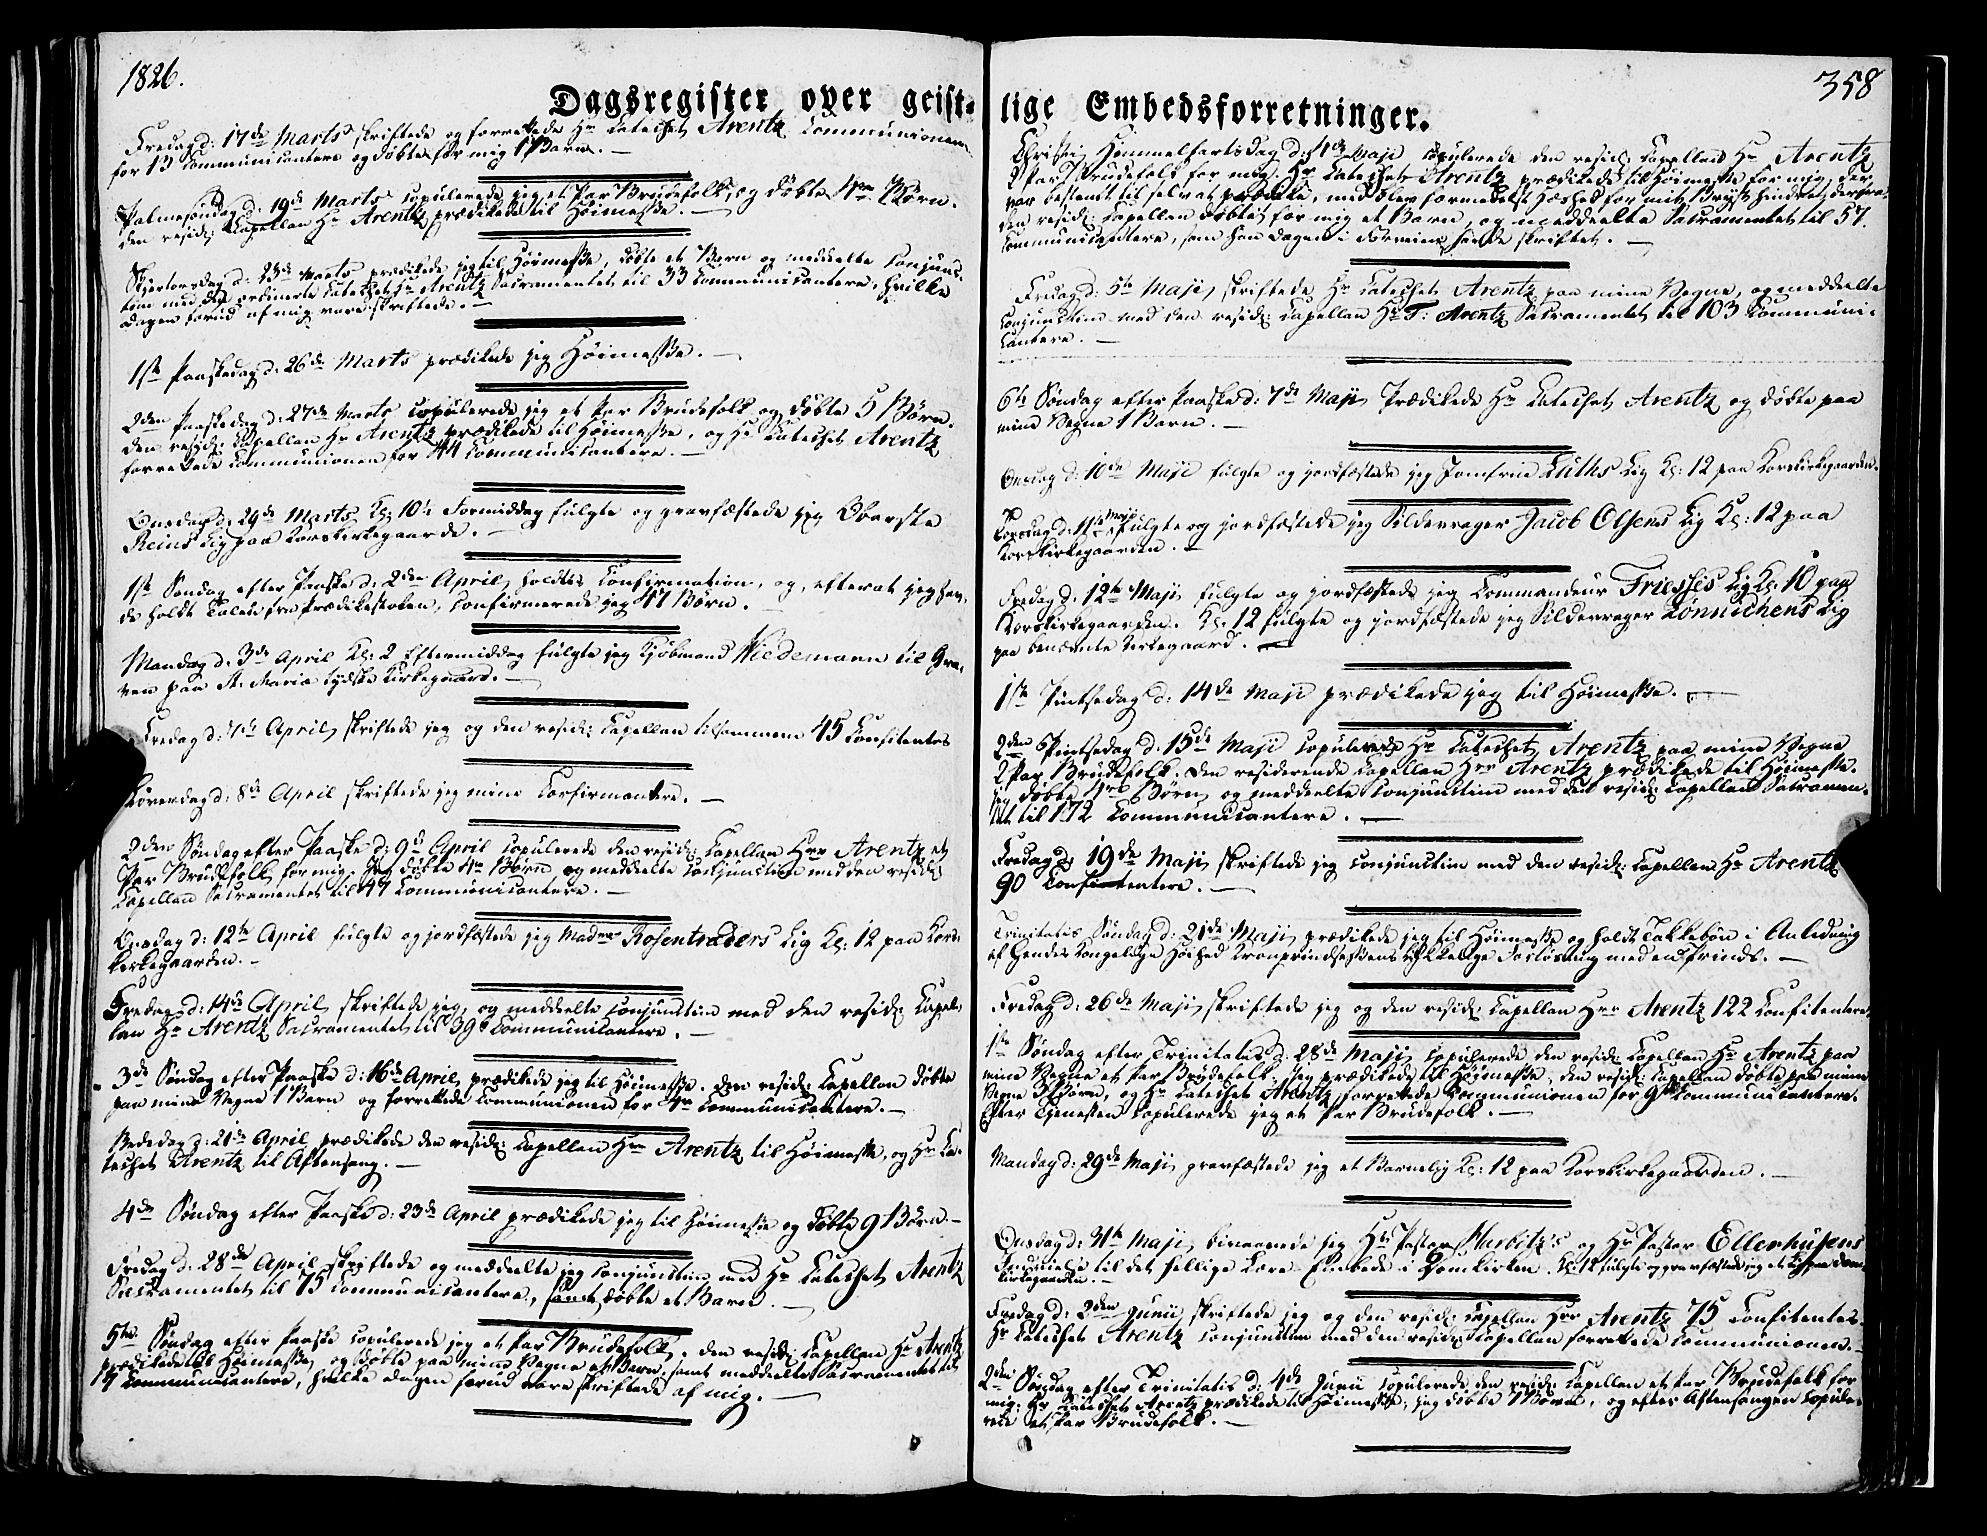 1826.
358
Dagsregister over geist-
lige Embedsforretninger.
Fredag d: 17de Marts skriftede og forrettede Hr Catechet Arentz Communionen
for 13 Communicantere og døbte for mig 1 Barn.
Palmesøndag d: 19de Marts copulerede jeg et Par Brudefolk, og døbte 4re Børn.
den resid: Capellan Hr Arentz prædikede til Høimesse. —
Skjertorsdag d: 23de Marts prædikede jeg til Høimesse, døbte et Barn og meddeelte conjunc-
tim med den ordinerte Catechet Hr Arentz Sacramentet til 33 Communicantere, hvilke
Dagen forud af mig vare skriftede. —
1ste Paaskedag d: 26de Marts prædikede jeg Høimesse. —
2den Paaskedag d: 27de Marts copulerede jeg et Par Brudefolk og døbte 5 Børn.
den resid: Capellan Hr Arentz prædikede til Høimesse, og Hr Catechet Arentz
forrettede Communionen for 44 Communicantere. —
Onsdag d: 29de Marts Kl: 10½ Formiddag fulgte og gravfæstede jeg Oberste
Reins Lig paa Korskirkegaarde. —
1ste Søndag efter Paaske d: 2den April, holdtes Confirmation, og, efterat jeg hav-
de holdt Talen fra Prædikestolen, confirmerede jeg 47 Børn. —
Mandag d: 3de April Kl: 2 Eftermiddag fulgte jeg Kjøbmand Wiedemann til Gra-
ven paa St. Mariæ Tydske Kirkegaard. —
Fredag d: 7de April, skriftede jeg og den resid: Capellan tilsammen 45 Confitentes
Løverdag d: 8de April skriftede jeg mine Confirmantere. —
2den Søndag efter Paaske d: 9de April copulerede den resid: Capellan Herr Arentz et
Par Brudefolk for mig. Jeg døbte 4re Børn, og meddeelte Conjunctim med den resid:
Capellan Sacramentet til 47 Communicantere. —
Onsdag d: 12te April fulgte og jordfæstede jeg Madme Rosentræders Lig Kl: 12 paa Kors-
kirkegaarden. —
Fredag d: 14de April skriftede jeg, og meddeelte conjunctim med den resid: Capel-
lan Hr Arentz Sacramentet til 39 Communicantere. —
3de Søndag efter Paaske d: 16de April, prædikede jeg til Høimesse. den resid: Capellan døbte
paa mine Vegne 1 Barn og forrettede Communionen for 4re Communicantere. —
Bededag d: 21de April prædikede den resid: Capellan Hrr Arentz til Høimesse, og Hr Ca-
techet Arentz til Aftensang. —
4de Søndag efter Paaske d: 23de April prædikede jeg til Høimesse og døbte 9 Børn. —
Fredag d: 28de April skriftede og meddeelte jeg conjunctim med Hr Catechet Arentz
Sacramentet til 75 Communicantere, samt døbte et Barn. —
5te Søndag efter Paaske copulerede jeg et Par Brudefolk, den resid: Capellan Hr Arentz
prædikede til Høimesse, og døbte paa mine Vegne et Barn, samt meddeelte Sacramentet til
17 Communicantere, hvilke Dagen forud vare skriftede af mig. —
Christi Himmelfartsdag d: 4de Maji copulerede den resid: Capellan Hr Arentz
2 Par Brudefolk for mig. Hr Catechet Arentz prædikede til Høimesse for mig, der
var bestemt til selv at prædike, med blev formedelst Hæshed for mit Bryst hindret derfra.
den resid: Capellan døbte for mig et Barn, og meddeelte Sacramentet til 57
Communicantere, som han Dagen i Forveien havde skriftet. —
Fredag d: 5te Maji, skriftede Hr Catechet Arentz paa mine Vegne, og meddeelte
conjunctim med den resid: Capellan Hr F: Arentz Sacramentet til 103 Communi-
cantere. —
6te Søndag efter Paaske d: 7de Maji Prædikede Hr Catechet Arentz og døbte paa
mine Vegne 1 Barn. —
Onsdag d: 10de Maji fulgte og jordfæstede jeg Jomfrue Luths Lig Kl: 12 paa Korskirkegaarden.
Torsdag d: 11te Maji fulgte og jordfæstede jeg Sildevrager Jacob Olsens Lig Kl: 12 paa
Korskirkegaarden. —
Fredag d: 12te Maji fulgte og jordfæstede jeg Commandeur Friesses Lig Kl: 10 paa
Korskirkegaarden. Kl: 12 fulgte og jordfæstede jeg Sildevrager Lönnichens Lig
paa benævnte Kirkegaard. —
1ste Pintsedag d: 14de Maji prædikede jeg til Høimesse. —
2den Pintsedag d: 15de Maji copulerede Hr Catechet Arentz paa mine Vegne
2 Par Brudefolk. den residerende Capellan Hrr Arentz prædikede til Høimesse.
jeg døbte 4re Børn, og meddeelte conjunctim med den resid: Capellan Sacramen-
tet til 172 Communicantere. —
Fredag d: 19de Maji skriftede jeg conjunctim med den resid: Capellan Hr Arentz
90 Confitentere. —
Trinitatis Søndag d: 21de Maji, prædikede jeg til Høimesse og holdt Takkebøn i Anledning
af Hendes Kongelige Høihed Kronprindsessens lykkelige Forløsning med en Prinds. —
Fredag d: 26de Maji skriftede jeg og den resid: Capellan Hrr Arentz 122 Confitentere.
1ste Søndag efter Trinitatis d: 28de Maji, copulerede den resid: Capellan Hr Arentz paa
mine Vegne et Par Brudefolk. Jeg prædikede til Høimesse, den resid: Capellan døbte paa mine
Vegne 3 Børn, og Hr Catechet Arentz forrettede Communionen for 9 Communicantere.
Efter Tjenesten copulerede jeg et Par Brudefolk. —
Mandag d: 29de Maji gravfæstede jeg et Barnelig Kl: 12 paa Korskirkegaarden. —
Onsdag d: 31te Maji, bivaanede jeg Hr Pastor og Hr Pastor Ellerhusens
til det hellige Lære-Embede i Domkirken. Kl: 12 fulgte og gravfæstede jeg et
kirkegaarden. —
Fredag d: 2den Junii, skriftede jeg og den resid: Capellan Hrr Arentz 75 Confitentes.
Hr Catechet Arentz conjunctim med den resid: Capellan forrettede Communionen. —
2den Søndag efter Trinitatis d: 4de Junii copulerede den resid: Capellan et Par Brudefolk for
mig. Hr Catechet Arentz prædikede til Høimesse, jeg døbte 7 Børn, og efter Aftensangen copule-
rede et Par Brudefolk. —